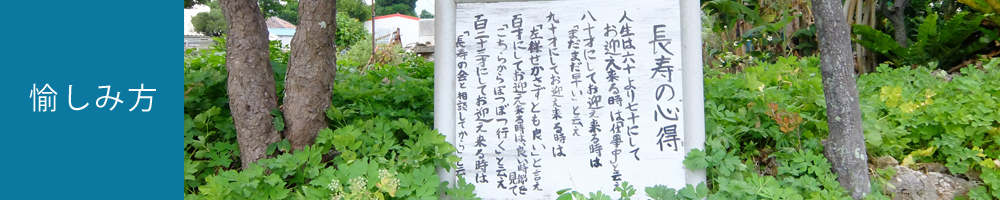 愉しみ方
長寿の心得
人生は六十より七十にして
お迎え来る時は仕事中と云え
八十才にしてお迎え来る時は
「まだまだ早い」と云え
九十才にしてお迎え来る時は
「左様せかさずとも良い」と言え
百才にしてお迎え来る時は、良い時節を見て
「こちらからぼつぼつ行く」と云え
百二十才にしてお迎え来る時は
「長寿の会と相談してから」と云え